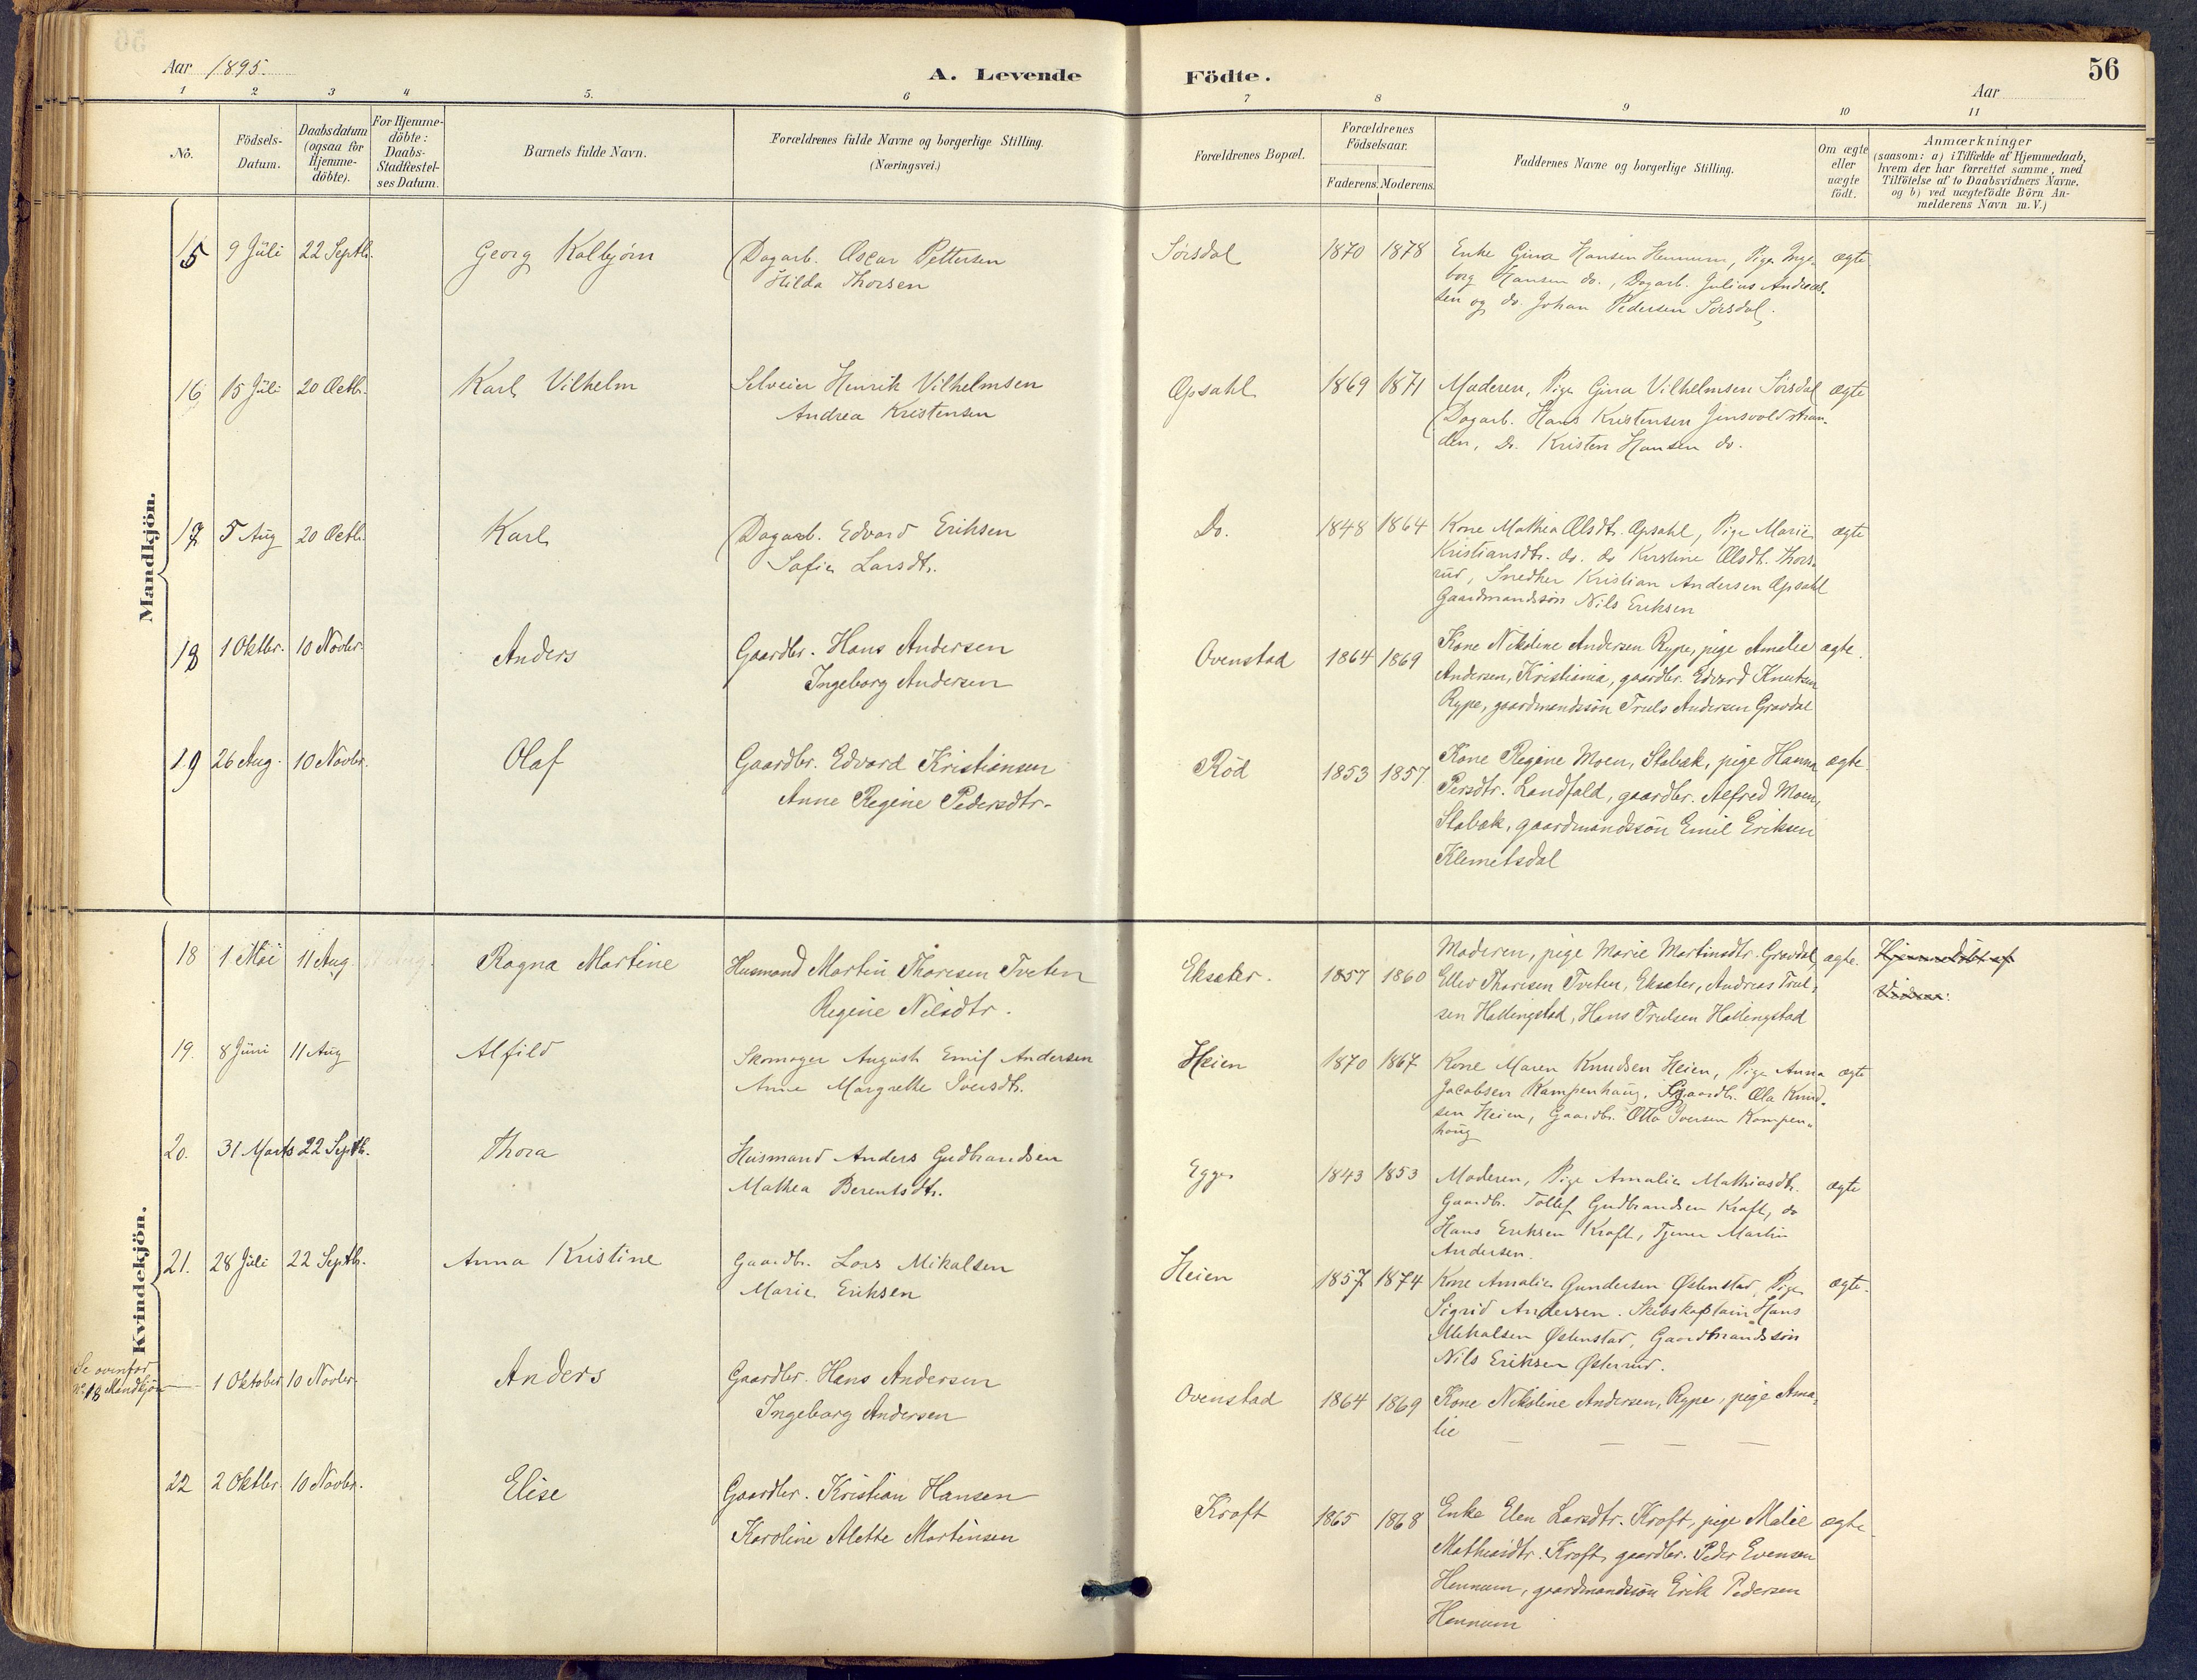 Aar 1895.
A. Levende Födte.
56
Aar
1 2 3 4 5. 6 7 8 9 10 11
No.
Födsels-Datum.
Daabsdatum (ogsaa for Hjemme-döbte).
For Hjemme-döbte: Daabs-Stadfæstel-ses Datum.
Barnets fulde Navn.
Forældrenes fulde Navne og borgerlige Stilling.
(Næringsvei.)
Forældrenes Bopæl.
Forældrenes Födselsaar.
Faderens. Moderens.
Faddernes Navne og borgerlige Stilling.
Om ægte eller uægte födt.
Anmærkninger
(saasom: a) i Tilfælde af Hjemmedaab,
hvem der har forrettet samme, med
Tilföielse af to Daabsvidners Navne,
og b) ved uægtefödte Börn An-
melderens Navn m.V.)
Mandkjön.
15 9 Juli 22 Septb. Georg Kolbjørn Dagarb. Oscar Pettersen Sørsdal 1870 1878 Enke Gina Hansen Hennum, Pige Inge- ægte
Hilda Thorsen borg Hansen do., Dagarb. Julius Andreas-
sen og do. Johan Pedersen Sørsdal.
16 15 Juli 20 Octb. Karl Vilhelm Selveier Henrik Vilhelmsen Opsahl 1869 1871 Moderen, Pige Gina Vilhelmsen Sørsdal ægte
Andrea Kristensen Dagarb. Hans Kristensen Jensvoldstran-
den, Do. Kristen Hansen do.
17 5 Aug 20 Octb. Karl Dagarb. Edvard Eriksen Do. 1848 1864 Kone Mathea Olsdt. Opsahl, Pige Marie ægte
Sofie Larsdt. Kristiansdtr. do. do Kirstine Olsdt. Thors-
rud, Snedker Kristian Andersen Opsahl
Gaardmandssøn Nils Eriksen
18 1 Oktbr. 10 Novbr. Anders Gaardbr. Hans Andersen Ovenstad 1864 1869 Kone Nikoline Andersen Rype, pige Amalie ægte.
Ingeborg Andersen Andersen, Kristiania, gaardbr. Edvard Knutsen
Rype, gaardmandssøn Truls Andersen Gravdal
19 26 Aug. 10 Novbr. Olaf Gaardbr. Edvard Kristiansen Röd 1853 1857 Kone Regine Moen, Stabæk, pige Hanna ægte.
Anne Regine Pedersdtr. Persdtr. Landfald, gaardbr. Alfred Moen,
Stabæk, gaardmandssøn Emil Eriksen
Klemetsdal
Kvindekjön.
18 1 Mai 11 Aug. Ragna Martine Husmand Martin Thoresen Tveten Eksæter. 1857 1860 Moderen, pige Marie Martinsdtr. Gravdal, ægte. Hjemmedöbt af
Regine Nilsdtr. Ellev Thoresen Tveten, Eksæter, Andreas Trul-
sen Hallingstad, Hans Trulsen Hallingstad
19. 8 Juni 11 Aug Alfild Skomager August Emil Andersen Heien 1870 1867 Kone Maren Knudsen Heien, Pige Anna ægte
Anne Margrethe Iversdt. Jacobsen Kampenhaug, Gaardb. Ola Knud-
sen Heien, Gaardbr. Otto Iversen Kampen-
haug
20. 31 Marts 22 Septb. Thora Husmand Anders Gudbrandsen Egge 1843 1853 Moderen, Pige Amalie Mathiasdtr. ægte
Mathea Berentsdt. Gaardb. Tollef Gudbrandsen Kraft, do
Hans Eriksen Kraft, Tjener Martin
Andersen.
21. 28 Juli 22 Septb. Anna Kristine Gaardbr. Lars Mikalsen Heien 1857 1874 Kone Amalie Gundersen Østenstad, Pige ægte.
Marie Eriksen Sigrid Andersen. Skibskaptain Hans
Mikalsen Østenstad, Gaardmandssøn
Nils Eriksen Østerud.
Se ovenfor
No 18 Mandkjön 1 Oktober 10 Novbr. Anders Gaardbr. Hans Andersen Ovenstad 1864 1869 Kone Nikoline Andersen, Rype, pige Ama-
Ingeborg Andersen lie
22 2 Oktbr. 10 Novbr. Elise Gaardbr. Kristian Hansen Kroft 1865 1868 Enke Elen Larsdtr. Kroft, pige Malie ægte
Karoline Alette Martinsen Mathiasdtr. Kroft, gaardbr. Peder Evensen
Hennum, gaardmandssøn Erik Pedersen
Hennum